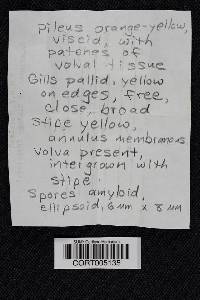 pileus orange-yellow,
viscid, with
patches of
volval tissue
Gills pallid, yellow
on edges, free,
close, broad
Stipe yellow,
annulus membranous
Volva present,
intergrown with
stipe.
Spores amyloid,
ellipsoid, 6 µm x 8 µm
CORT005135